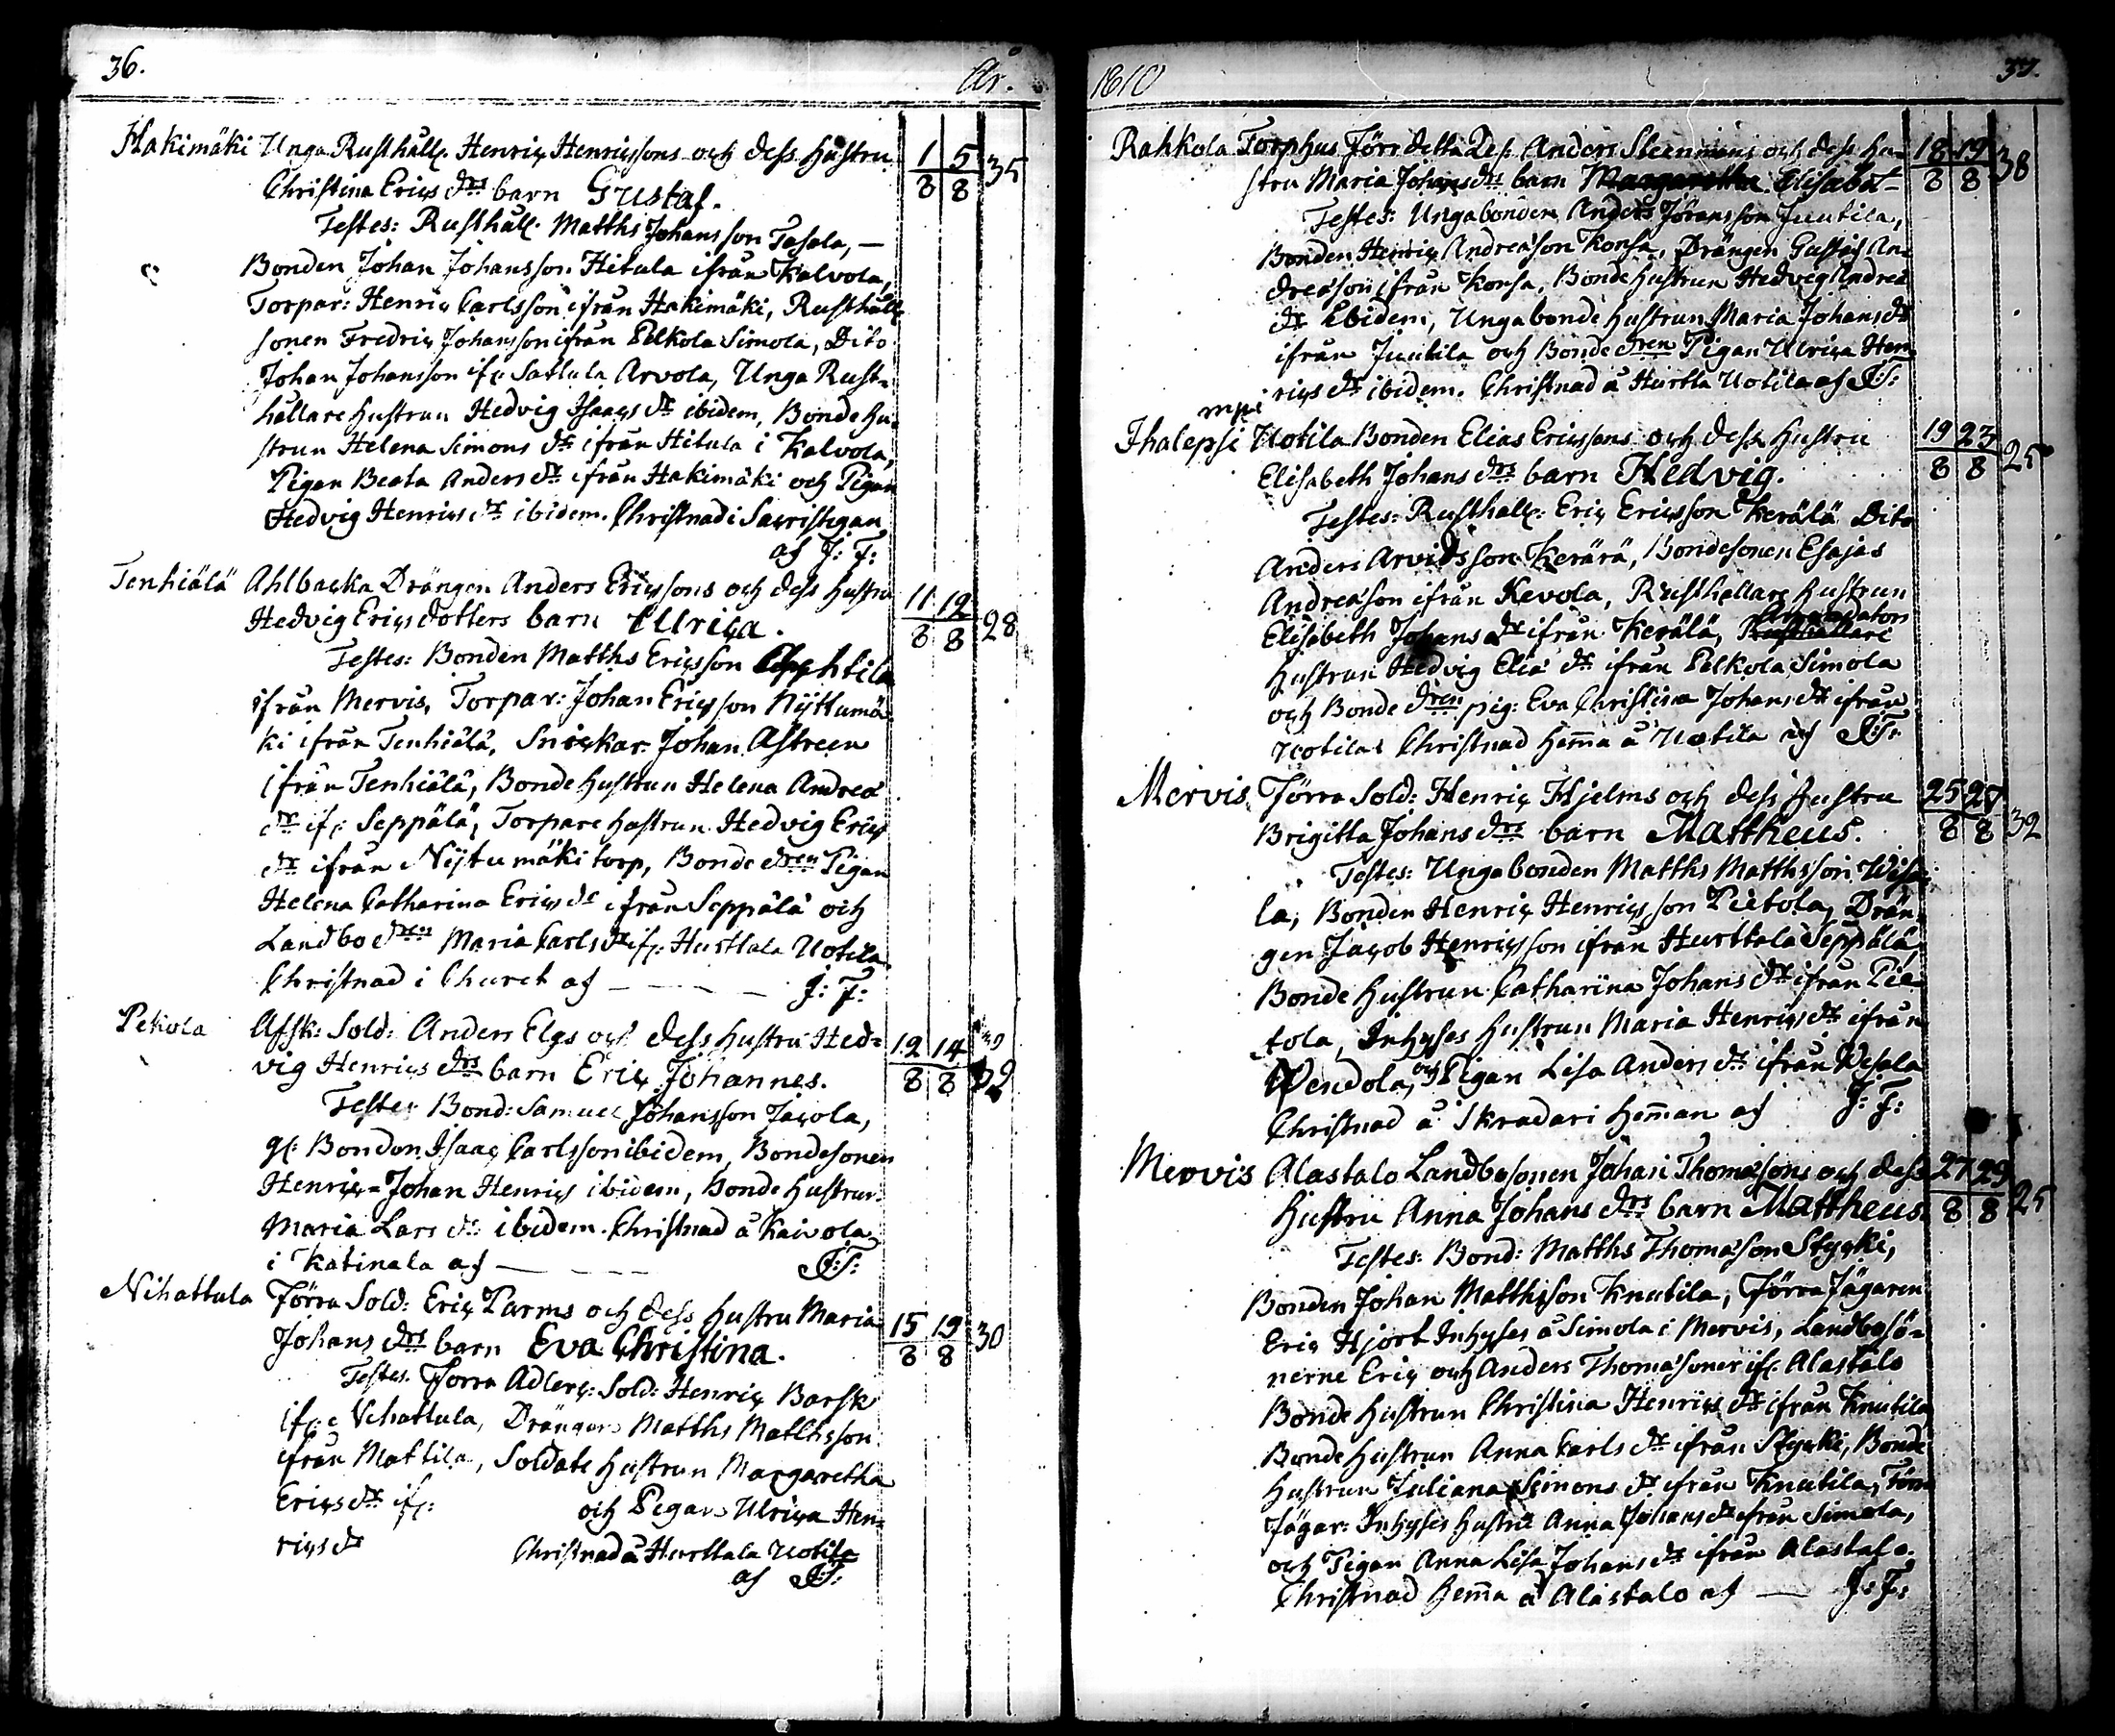 36. År.
Hakimäki Unga Rusthåll. Henric Henricssons och dess hustru 1 5 35
Christina Erics drs barn Gustaf. 8 8
Testes: Rusthåll. Matths Johansson Tasala, —
Bonden Johan Johansson Hitula ifrån Kalvola,
Torpar: Henric Carlsson ifrån Hakimäki, Rusthåll:
sonen Fredric Johansson ifrån Pelkola Simola, Dito
Johan Johansson ifr: Sattula Arvola, Unga Rust=
hållare hustrun Hedvig Isaacs dr ibidem, Bonde hu=
strun Helena Simons dr ifrån Hitula i Kalvola,
Pigan Beata Anders dr ifrån Hakimäki och Pigan
Hedvig Henrics dr ibidem. Christnad i Sacristigan
af J: F:
Tenhiälä Ahlbacka Drängen Anders Ericssons och dess hustru 11 12 28
Hedvig Erics dotters barn Ulrica. 8 8
Testes: Bonden Matths Ericsson
ifrån Mervis, Torpar: Johan Ericsson Nÿttumä=
ki ifrån Tenhiälä, Snickar. Johan Astreen
ifrån Tenhiälä, Bonde hustrun Helena Andreæ
dr ifr: Seppälä, Torpare hustrun Hedvig Erics
dr ifrån Nÿtumäki torp, Bonde dren Pigan
Helena Catharina Erics dr ifrån Seppälä och
Landbo dren Maria Carls dr ifr: Hurttala Uotila
Christnad i Churct af — — — — J: F:
Pekola Afsk: Sold: Anders Elgs och dess hustru Hed= 12 14 32
vig Henrics drs barn Eric Johannes. 8 8 32
Testes Bond: Samuel Johansson Jacola,
gl: Bonden Isaac Carlsson ibidem, Bondesonen
Henric=Johan Henrics ibidem, Bonde hustrun
Maria Lars dr ibidem. Christnad å Kaivola
i Katinala af — — — J:F:
Nihattula Förra Sold: Eric Parms och dess hustru Maria 15 19 30
Johans drs barn Eva Christina. 8 8
Testes. Förra Adlers: Sold: Henric Barsk
ifr: Nihattula, Drängen Matths Matthsson
ifrån Mattila, Soldate hustrun Margaretha
Erics dr ifr: och Pigan Ulrica Hen=
rics dr Christnad å Hurttala Uotila
af J:F:
1810 37.
Rahkola Torphus Förr detta Ref: Anders Steenmans och dess hu= 18 19 38
stru Maria Johans drs barn Margaretha Elisabet 8 8
Testes: Unga bonden Anders Jöransson Juutila,
Bonden Henric Andreæson Konsa, Drängen Gustaf An=
dreæson ifrån Konsa, Bonde hustrun Hedvig Andreæ
dr Ebidem, Unga bonde hustrun Maria Johans dr
ifrån Juutila och Bonde dren Pigan Ulrica Hen=
rics dr ibidem. Christnad å Hurtta Uotila af J:F:
mpi
Ihalepsi Uotila Bonden Elias Ericssons och dess hustru 19 23 25
Elisabeth Johans drs barn Hedvig. 8 8
Testes: Rusthåll: Eric Ericsson Kerälä Dito
Anders Arvidsson Kerärä, Bondesonen Esajas
Andreæson ifrån Kevola, Rusthållare hustrun
Elisabeth Johans dr ifrån Kerälä, Rusthållare Arrendators
hustrun Hedvig Eliæ dr ifrån Pelkola Simola
och Bonde dren pig: Eva Christina Johans dr ifrån
Uotila. Christnad hema å Uotila af J:F:
Mervis Förra Sold: Henric Hjelms och dess hustru 25 27 32
Brigitta Johans drs barn Mattheus. 8 8
Testes: Unga bonden Matths Matthsson Wesa=
la, Bonden Henric Henricsson Pietola, Drän=
gen Jacob Henricsson ifrån Hurttala Seppälä,
Bonde hustrun Catharina Johans dr ifrån Pie
tola, Inhyses hustrun Maria Henrics dr ifrån
Wendola, och Pigan Lisa Anders dr ifrån Wesala
Christnad å Skradari heman af J: F:
Mervis Alastalo Landbosonen Johan Thomæsons och dess 27 29 25
hustru Anna Johans drs barn Mattheus. 8 8
Testes: Bond: Matths Thomæson Stycki,
Bonden Johan Matthsson Knutila, Förra Jägaren
Eric Hjort Inhyses å Simola i Mervis, Landbosö=
nerne Eric och Anders Thomæsoner ifr: Alastalo
Bonde hustrun Christina Henrics dr ifrån Knutila
Bonde hustrun Anna Carls dr ifrån Stycki, Bonde
hustrun Juliana Simons dr ifrån Knutila, Förra
Jägar: Inhyses hustru Anna Johans dr ifrån Simola,
och Pigan Anna Lisa Johans dr ifrån Alastalo.
Christnad hema å Alastalo af — J: F: